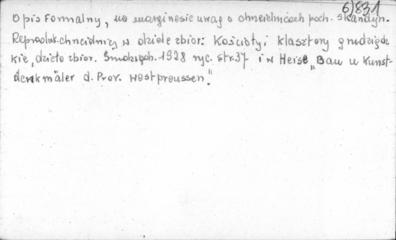 6/891
Opis formalny, na marginesie uwag o chrzcielnicach poch. skandyn.
Reproduk. chrzcielnicy w dziele zbior: Kościoły i klasztory grudziądz
kie, dzieło zbior. 1928 ryc. str. 37 i w Heise „Bau u Kunst-
denkmäler d. Prov. Westpreussen."